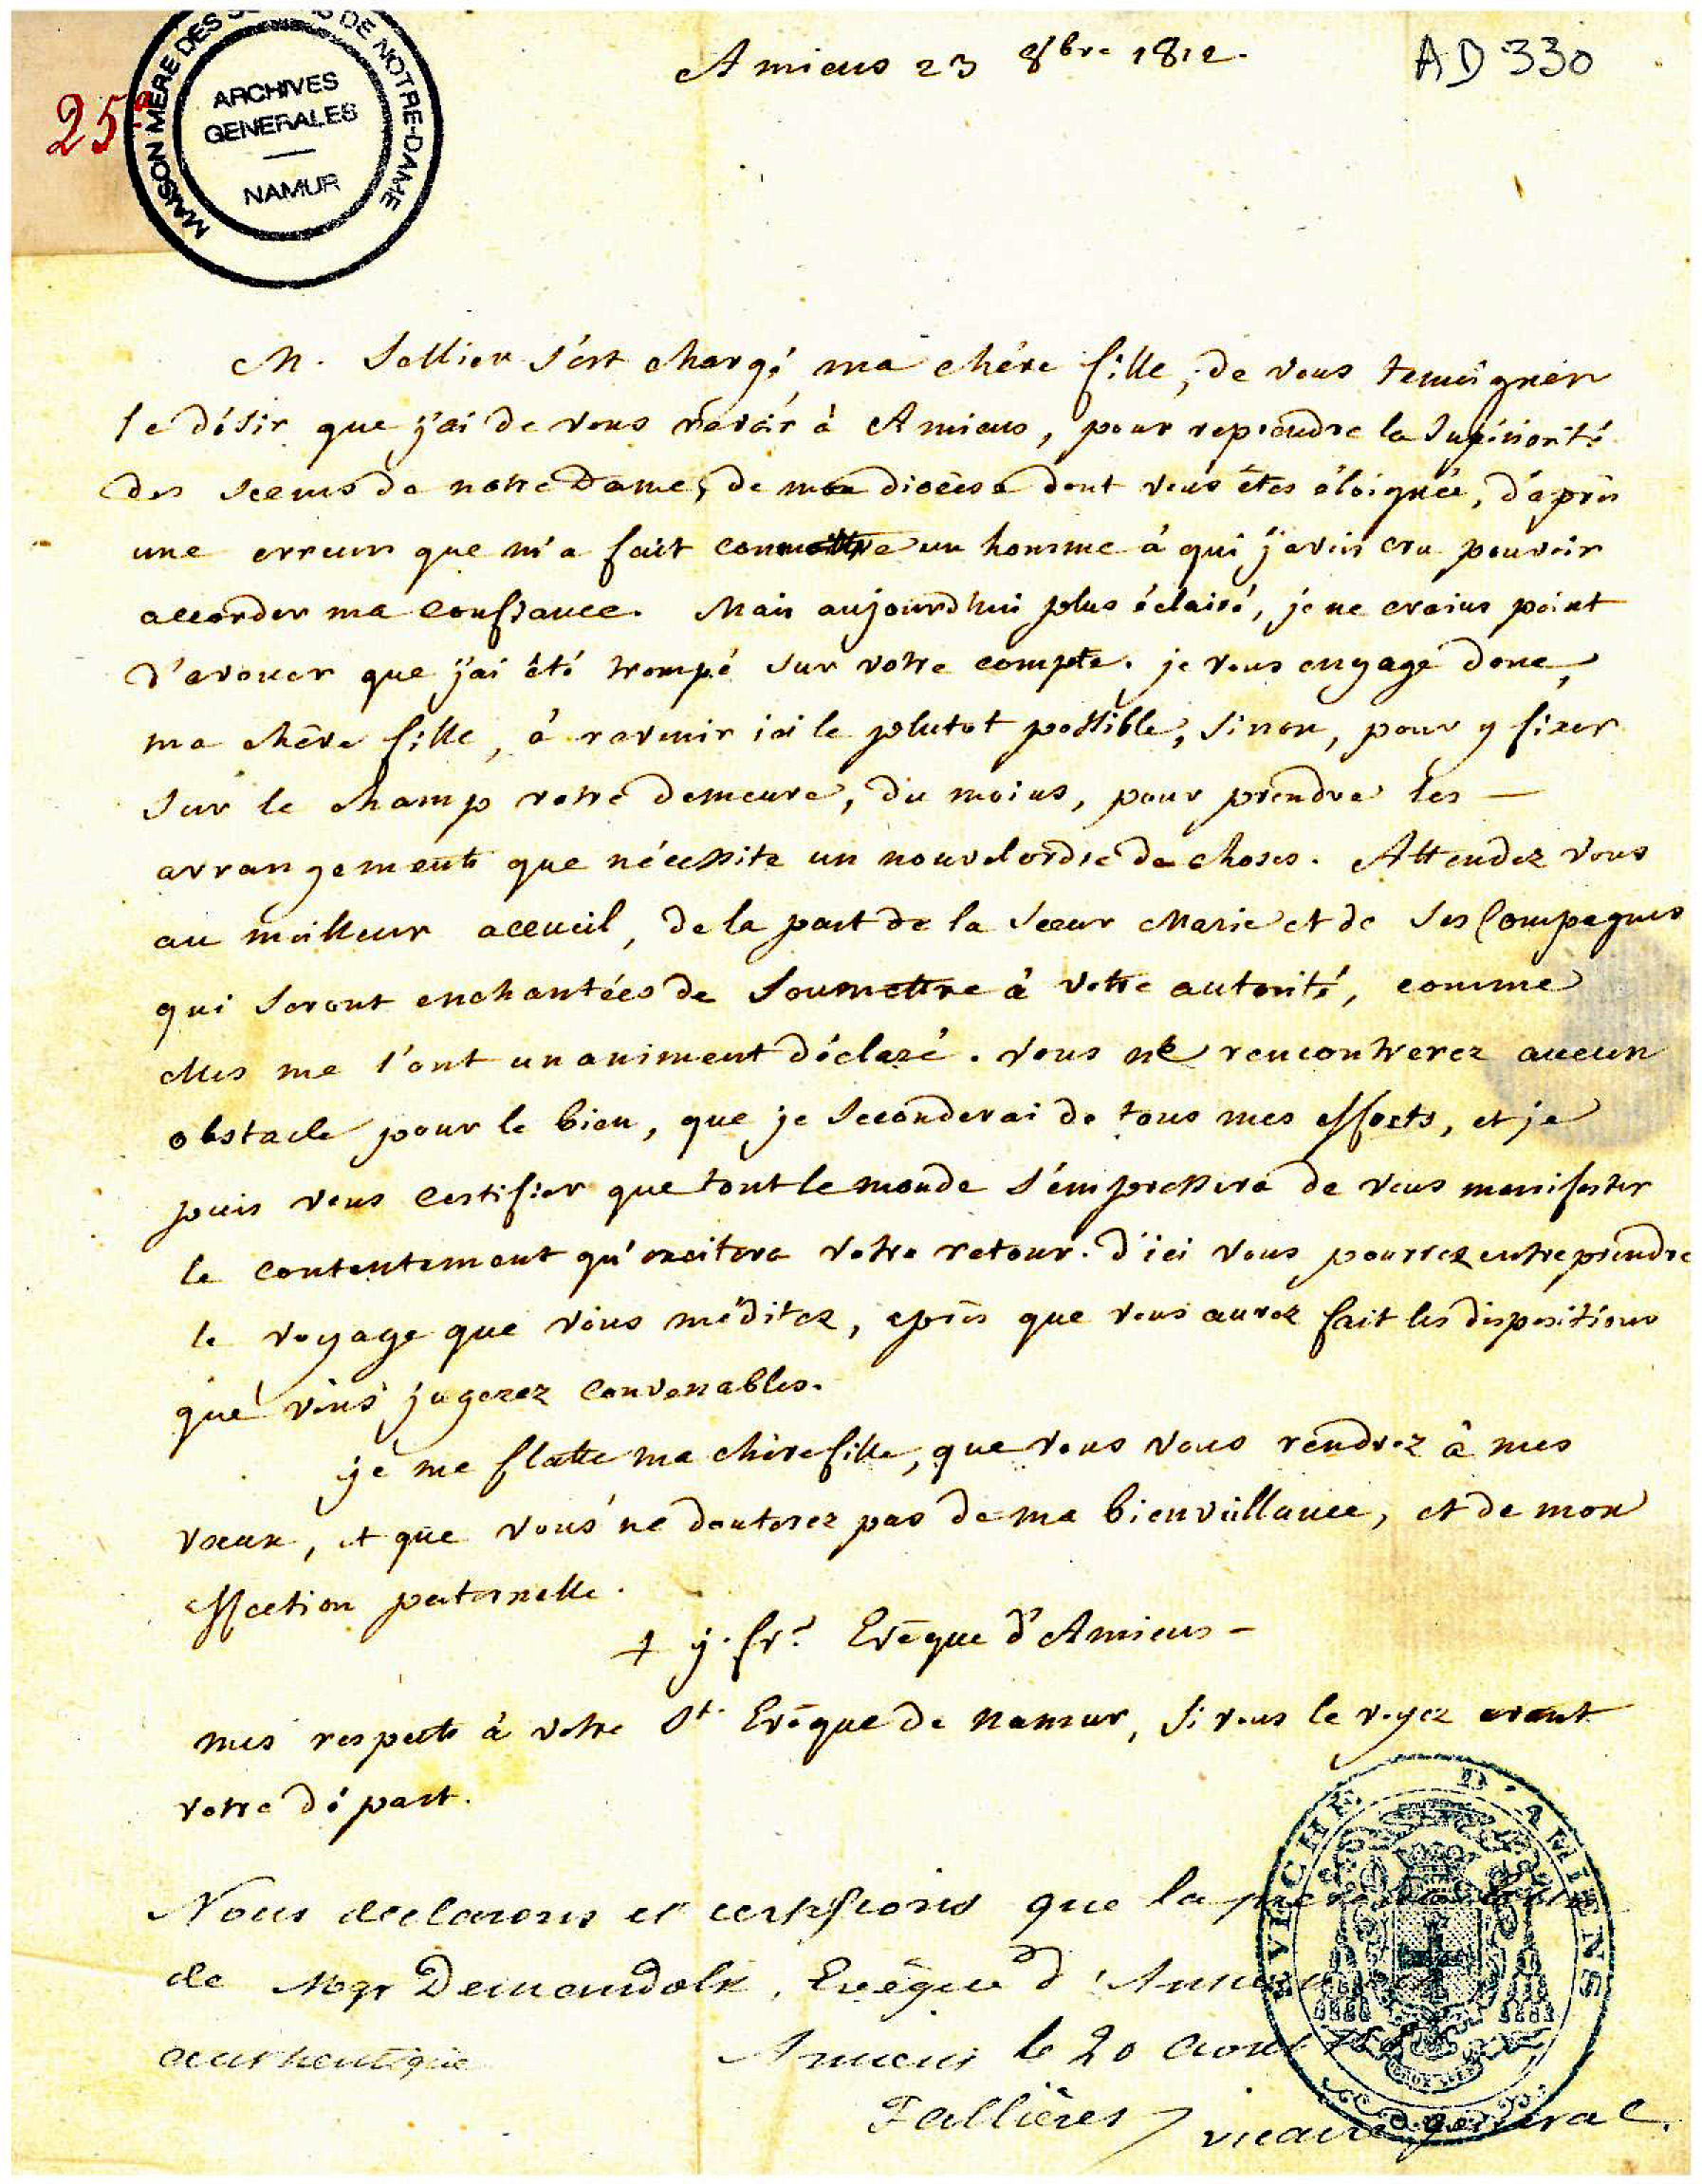 Amiens 23 8bre 1812.
AD 330
25
MAISON MERE DES SOEURS DE NOTRE-DAME
ARCHIVES
GENERALES
NAMUR
M. Sellier s'est chargé, ma chére fille, de vous temoigner
le désir que j'ai de vous revoir à Amiens, pour reprendre la Supériorité
des Sœurs de notre Dame, de mon diocèse dont vous êtes éloignée, d'après
une erreur que m'a fait commettre un homme à qui j'avois cru pouvoir
accorder ma confiance. Mais aujourd'hui plus éclairé, je ne crains point
d'avouer que j'ai été trompé sur votre compte. je vous engage donc,
ma chère fille, à revenir ici le plutot possible, sinon, pour y fixer
sur le champ votre demeure, du moins, pour prendre les —
arrangements que nécessite un nouvel ordre de choses. Attendez vous
au meilleur accueil, de la part de la Sœur Marie et de ses Compagnes
qui seront enchantées de soumettre à votre autorité, comme
elles me l'ont unaniment déclaré. vous ne rencontrerez aucun
obstacle pour le bien, que je seconderai de tous mes efforts, et je
puis vous certifier que tout le monde s'empressera de vous manifester
le contentement qu'excitera votre retour. d'ici vous pourrez entreprendre
le voyage que vous méditez, après que vous aurez fait les dispositions
que vous jugerez convenables.
je me flatte ma chère fille, que vous vous rendrez à mes
vœux, et que vous ne douterez pas de ma bienveillance, et de mon
affection paternelle.
+ j. fr. Evêque d'Amiens -
mes respects à votre St. Evêque de Namur, si vous le voyez avant
votre départ.
Nous declarons et certifions que la
de Mgr Demandolx, Evêque d'Amiens
authentique
Amiens le 20 aout
Fallières
vicaire general.
EVECHE D'AMIENS